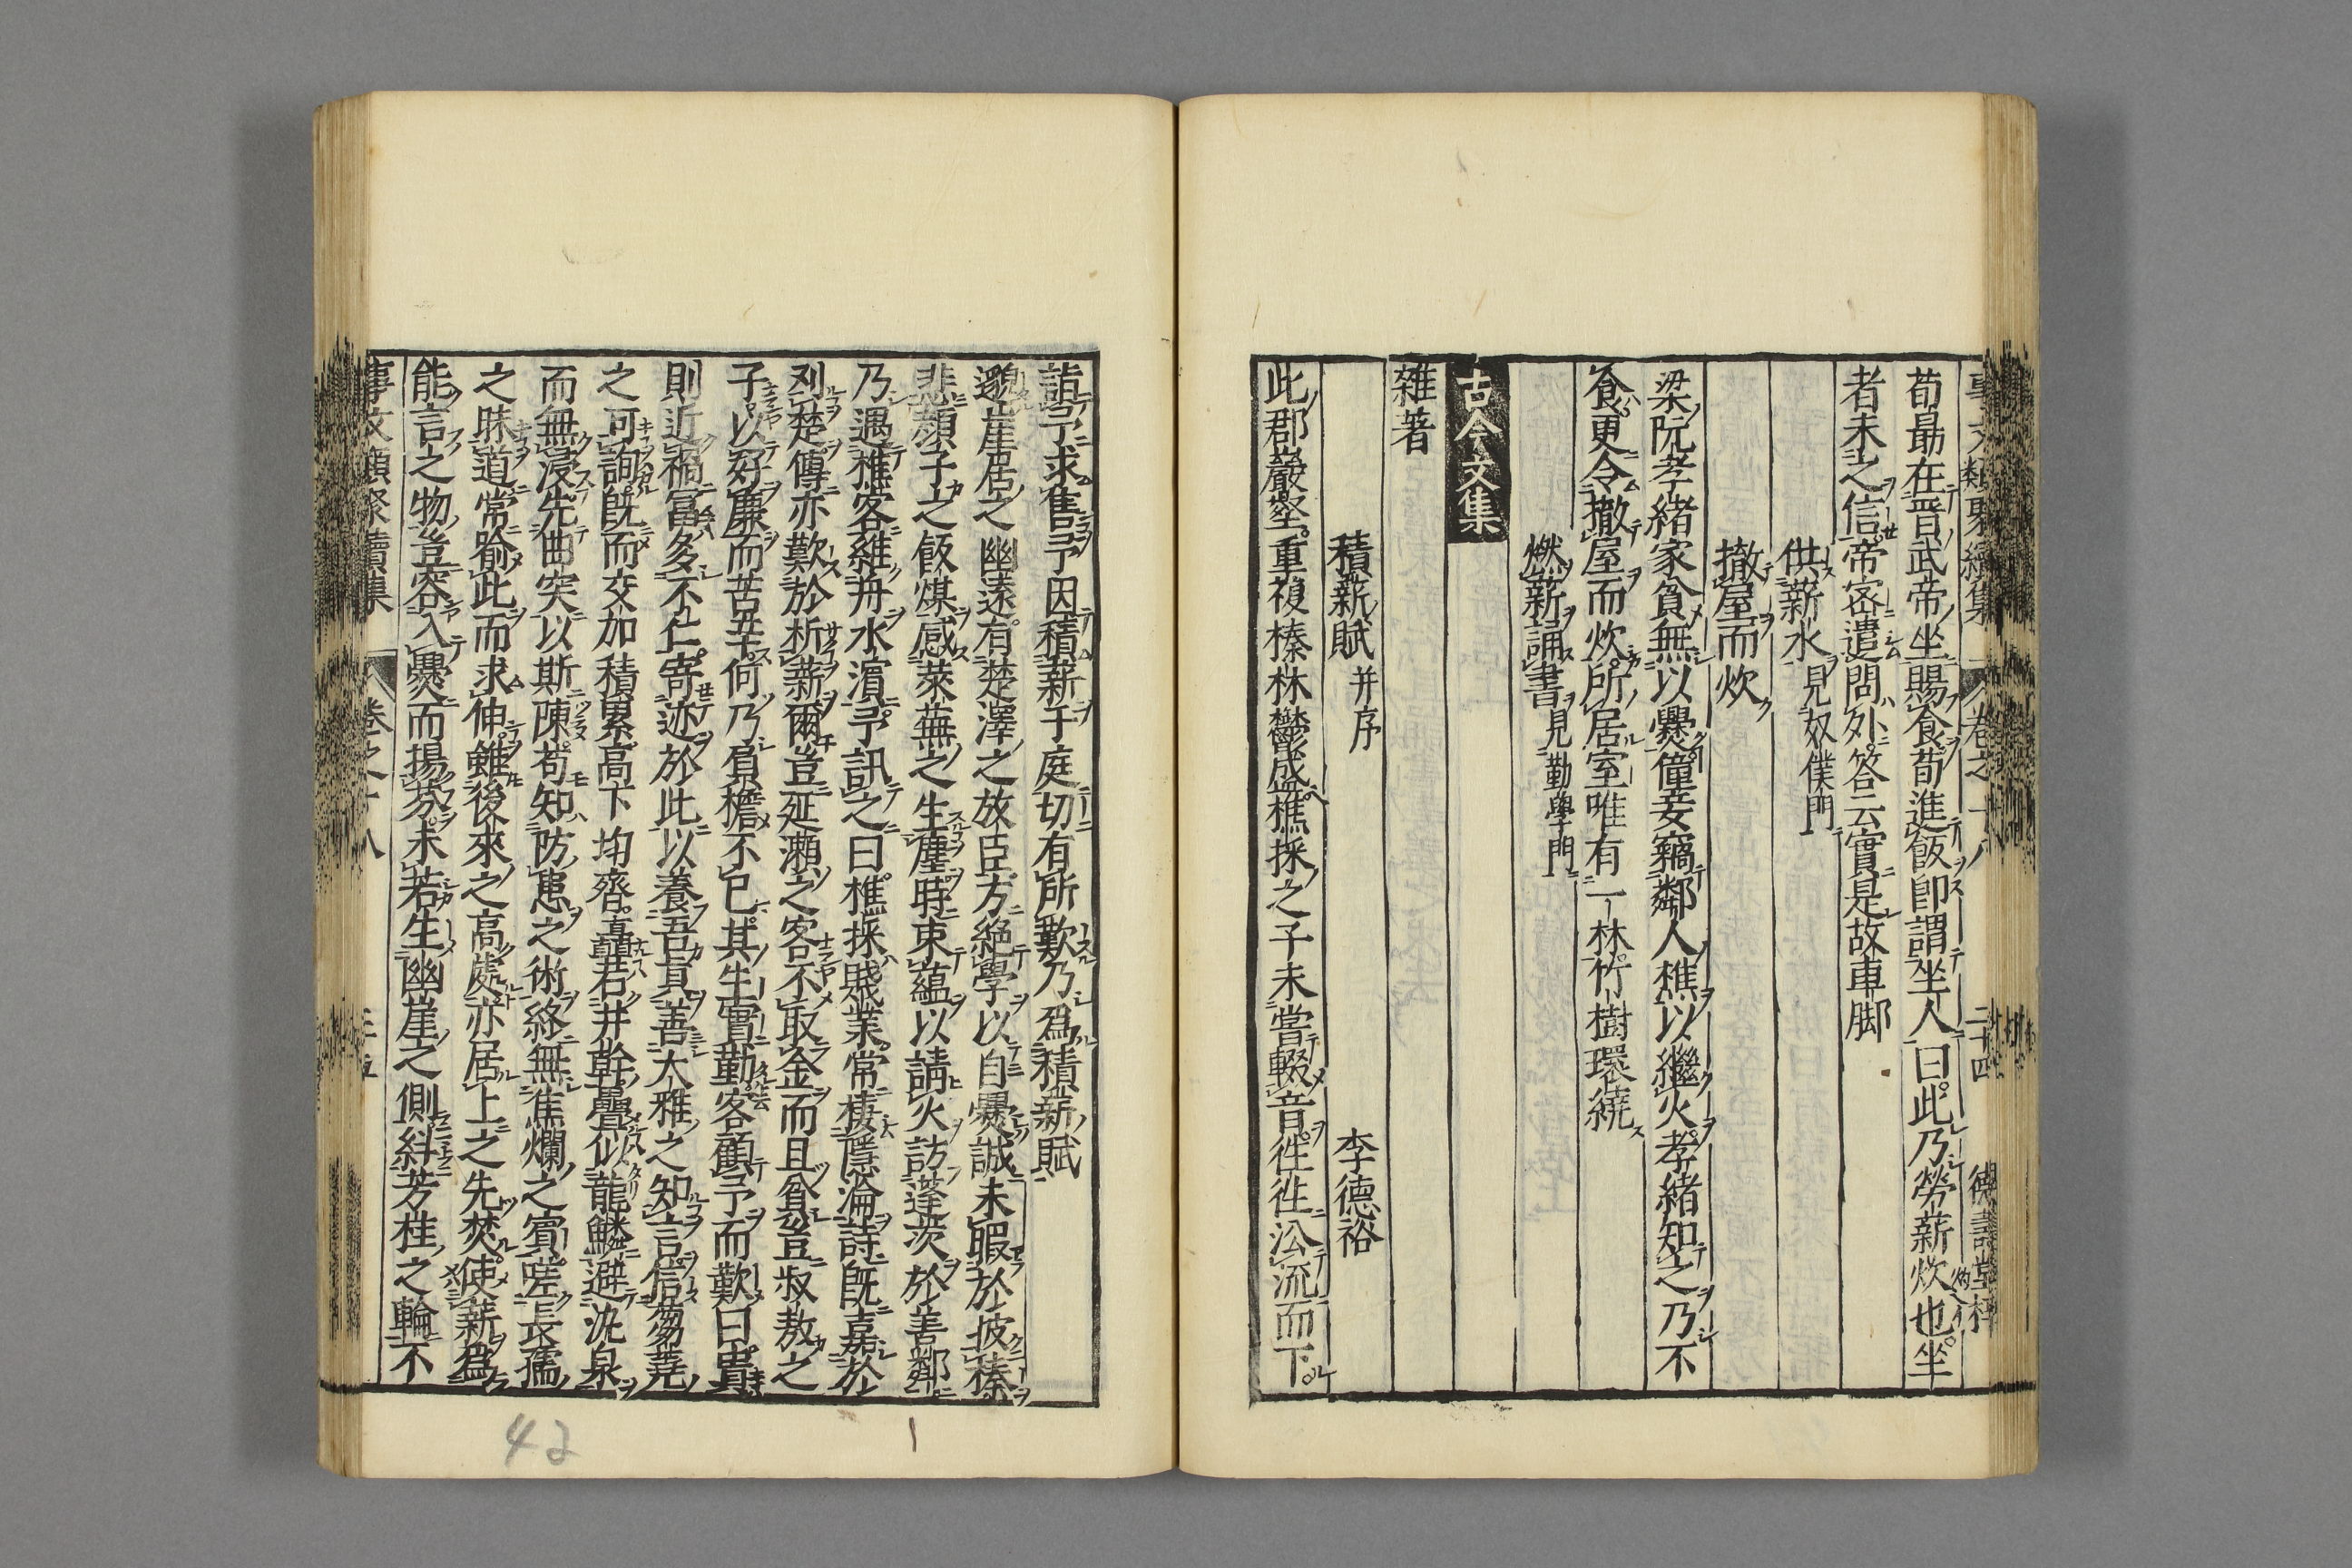 事文類聚續集 卷之十八 二十四 德壽堂梓
荀勗在晋武帝坐賜食荀進飯卽謂坐人曰此乃勞薪炊也坐
者未之信帝密遣問外答云實是故車脚
供薪水 見奴僕門
撤屋而炊
梁阮孝緒家貧無以爨僮妾竊鄰人樵以繼火孝緒知之乃不
食更令撤屋而炊所居室唯有一林竹樹環繞
燃薪誦書 見勤學門
古今文集
雜著
積薪賦 并序 李德裕
此郡巖壑重複榛林鬱盛樵採之子未嘗輟音徃徃㳂流而下
詣予求售予因積薪于庭切有所歎乃爲積薪賦
邈崖居之幽遠有楚澤之放臣方絕學以自爨誠未暇於披榛
悲顏子之飯煤感萊蕪之生塵時束蘊以請火訪蓬茨於善鄰
乃遇樵客維舟水濱予訊之曰樵採賤業常棲隱淪詩旣嘉於
刈楚傳亦歎於析薪爾豈延瀨之客不取金而且貧豈叔敖之
子以好廉而苦辛何乃肩檐不已其生實勤客顧予而歎曰貴
則近禍富多不仁寄迹於此以養吾眞善大雅之知言信蒭蕘
之可詢旣而交加積累高下均齊矗若井幹疊似龍鱗避沈泉
而無浸先曲突以斯陳苟知防患之術終無焦爛之賓嗟長孺
之昧道常踰此而求伸雖後來之高處亦居上之先焚使薪爲
能言之物豈容入爨而揚芬未若生幽崖之側糾芳桂之輪不
事文類聚續集 卷之十八
42